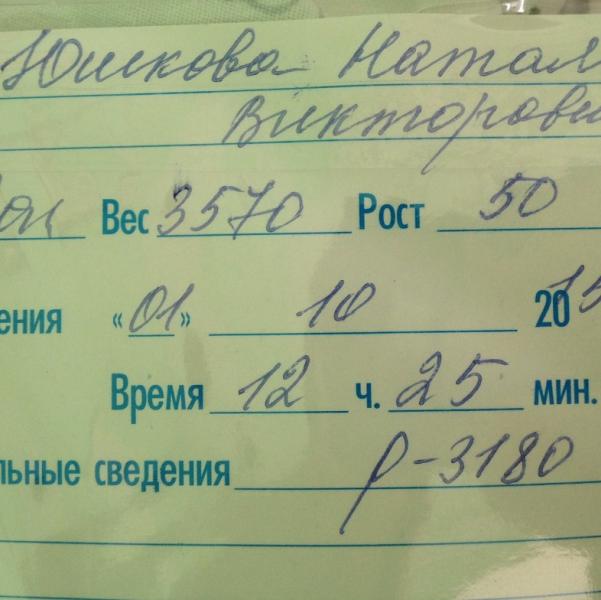 Юшкова Натал
Викторовн
Вес 3570 Рост 50
ения «01» 10 2015
Время 12 ч. 25 мин.
льные сведения р-3180